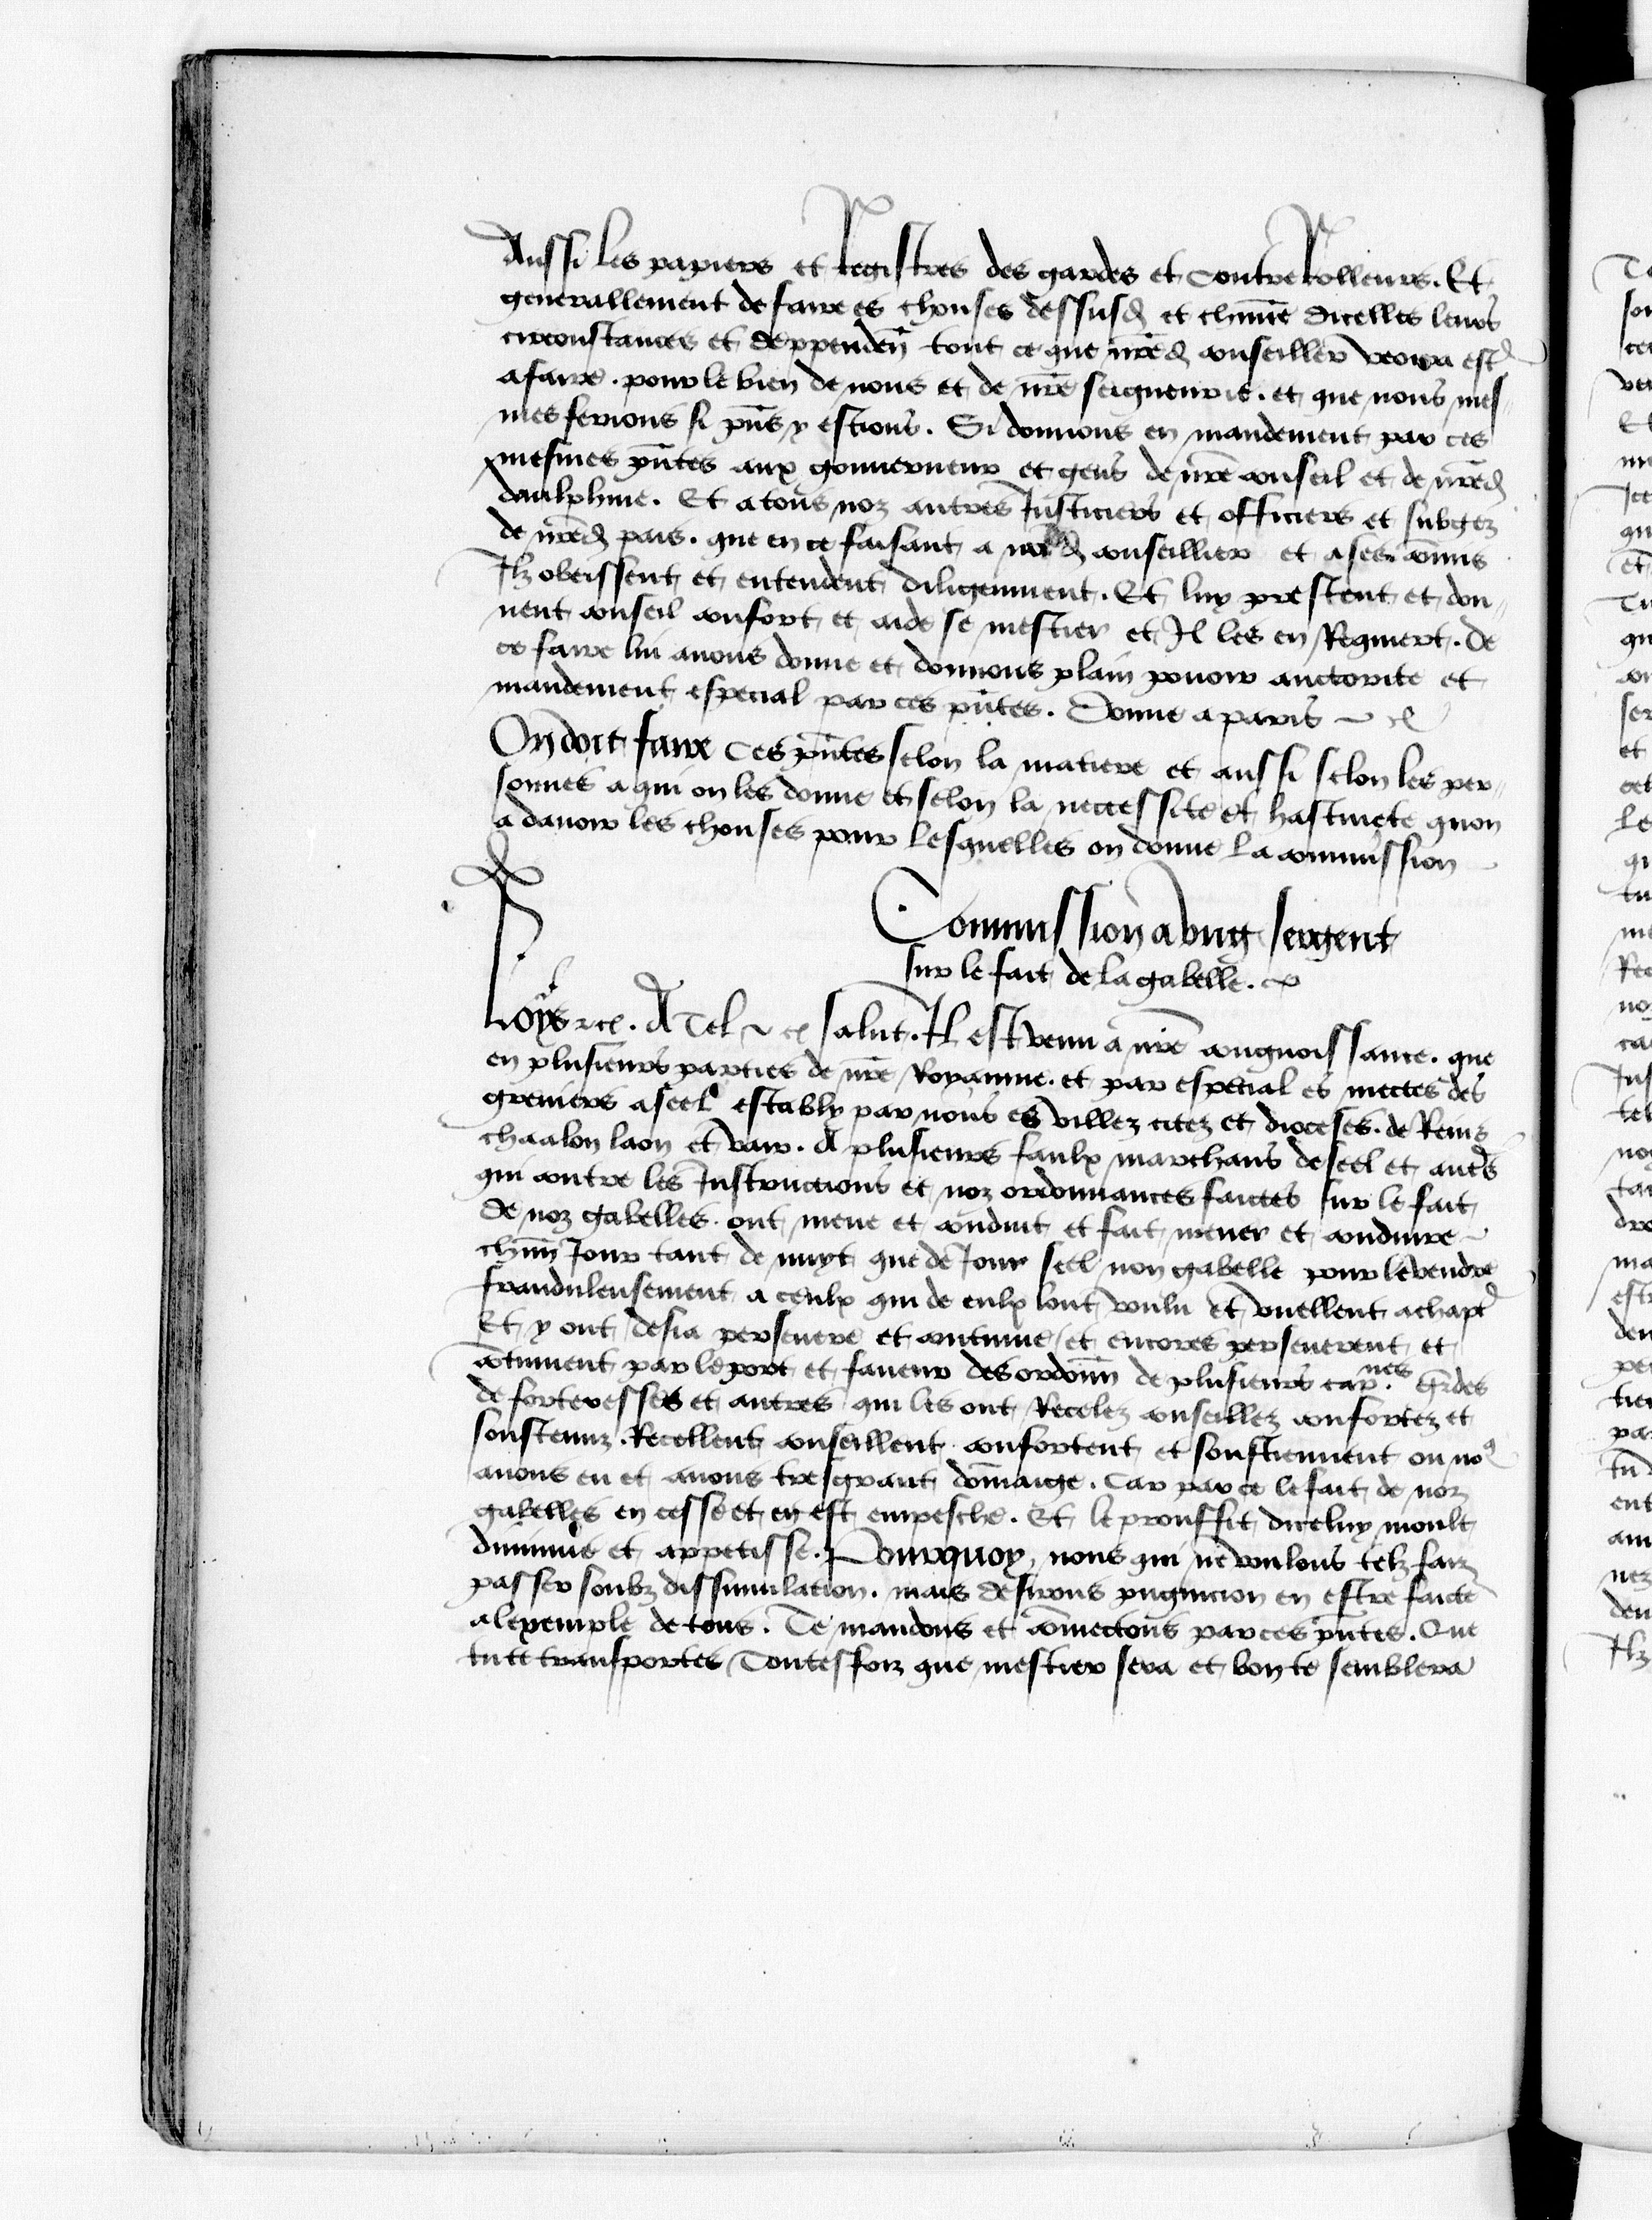 Aussi les papiers et Registres des gardes et contreRolleurs. Et
generallement de faire es chouses dessusd et chune dicelles leurs
circonstances et deppenden tout ce que nred conseiller verra estre
afaire. pour le bien de nous et de nre seigneurie. et que nous mes-
mes ferions si pns y estions. Si donnons en mandement par ces
mesmes pntes aux gouverneur et gens de nre conseil et de nred
daulphine. Et atous noz autres Justiciers et officiers et subgez
de nred pais. que en ce faisant a nred conseillier et a ses commis
Ilz obeissent et entendent diligemment. Et luy prestent et don-
nent conseil confort et aide se mestier et Il les en Requiert. De
ce faire lui avons donne et donnons plain pouoir auctorite et
mandement especial par ces pntes. Donne a paris ~ c
On doit faire ces pntes selon la matiere et aussi selon les per-
sonnes a qui on les donne et selon la necessite et hastivete quon
a davoir les chouses pour lesquelles on donne la commission
Commission a ung sergent
sur le fait de la gabelle.
Loys etc. A Tel ~ c salut. Il est venu a nre congnoissance. que
en plusieurs parties de nre Royaume. et par especial es mectes des
greniers a seel estably par nous es villez citez et dioceses. de Reins
chaalon laon et vair. A plusieurs faulx marchans de seel et autrs
qui contre les Instructions et noz ordonnances faictes sur le fait
de noz gabelles. ont mene et conduit et fait mener et conduire
chun Jour tant de nuyt que de Jour seel non gabelle pour le vendre
fraudulensement a ceulx qui de eulx lont voulu et vuellent achapter
Et y ont desia persevere et continue et encores perseverent et
continuent par le port et faveur des ordonn de plusieurs capnes gardes
de forteresses et autres qui les ont Recelez conseillez confortez et
soustenuz. Recellent conseillent confortent et soustiennent ou nos
avons eu et avons tresgrant dommaige. Car par ce le fait de noz
gabelles en cesse et en est empesche. Et le prouffit diceluy moult
diminue et appetisse. Pourquoy nous qui ne voulons telz faiz
passer soubz dissimulation. mais desirons pugnicion en estre faicte
a lexemple de tous. Te mandons et commectons par ces pntes. Que
tu te transportes Toutesfoiz que mestier sera et bon te semblera